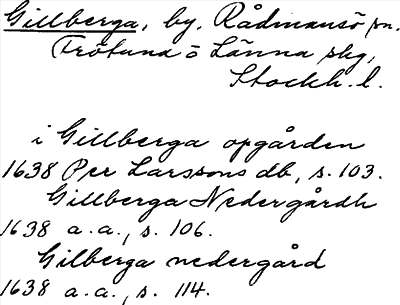 Gillberga, by, Rådmansö sn.
Frötuna o Länna slg,
Stockh. l.
i Gillberga opgården
1638 Per Larssons db, s. 103.
Gillberga Nedergårdh
1638 a.a., s. 106.
Gilberga nedergård
1638 a.a., s. 114.